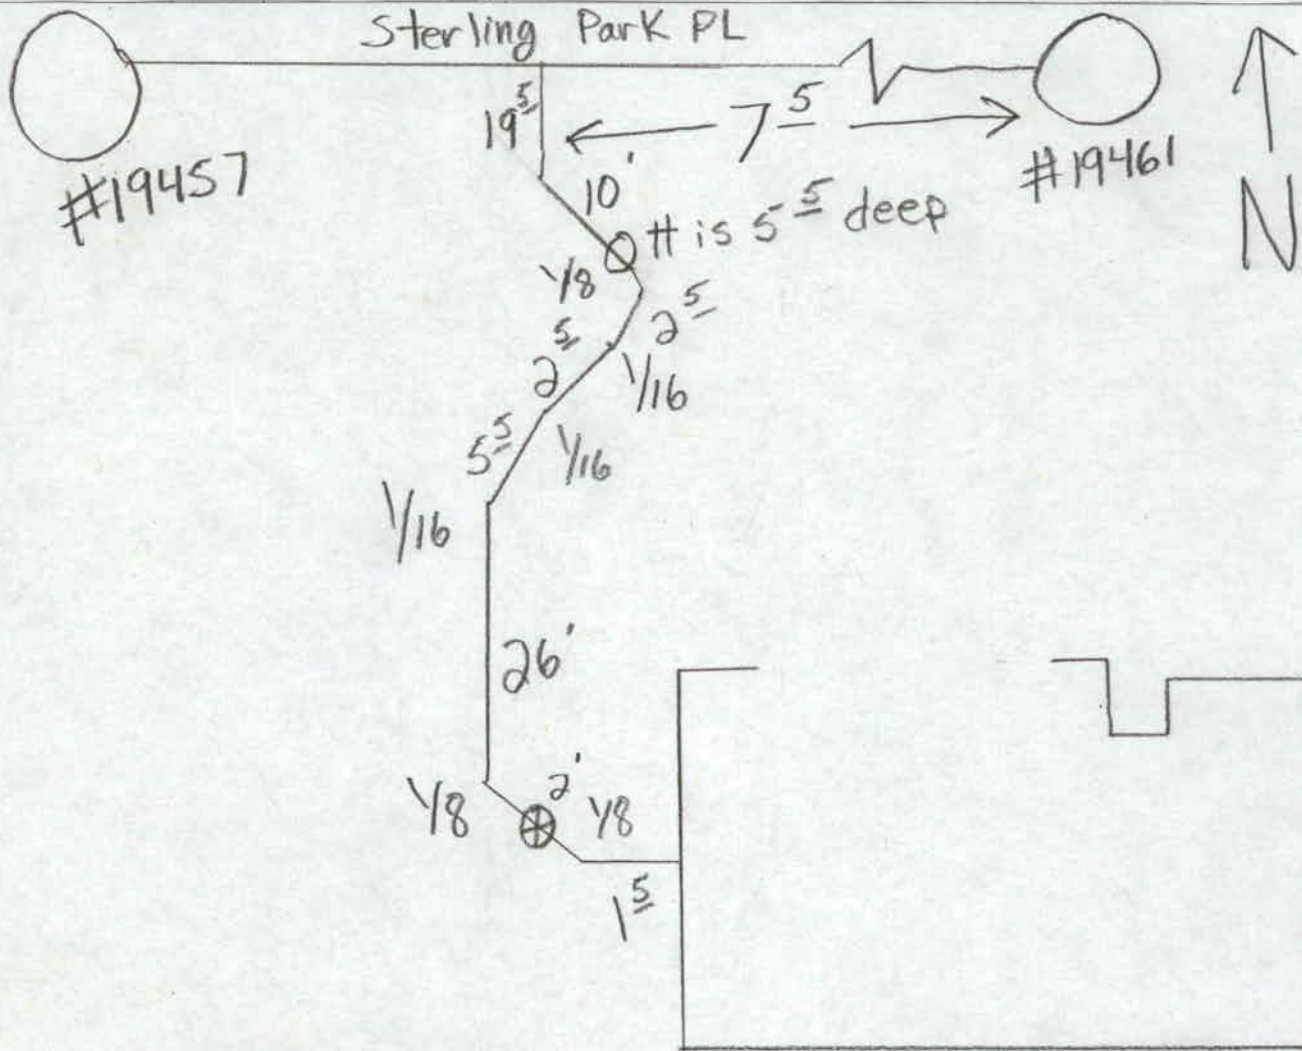 Sterling Park PL
19 5
7 5
#19457
#19461
N
10'
# is 5 5 deep
1/8
2 5
2 5
1/16
5 5
1/16
1/16
26'
1/8
2'
1/8
1 5